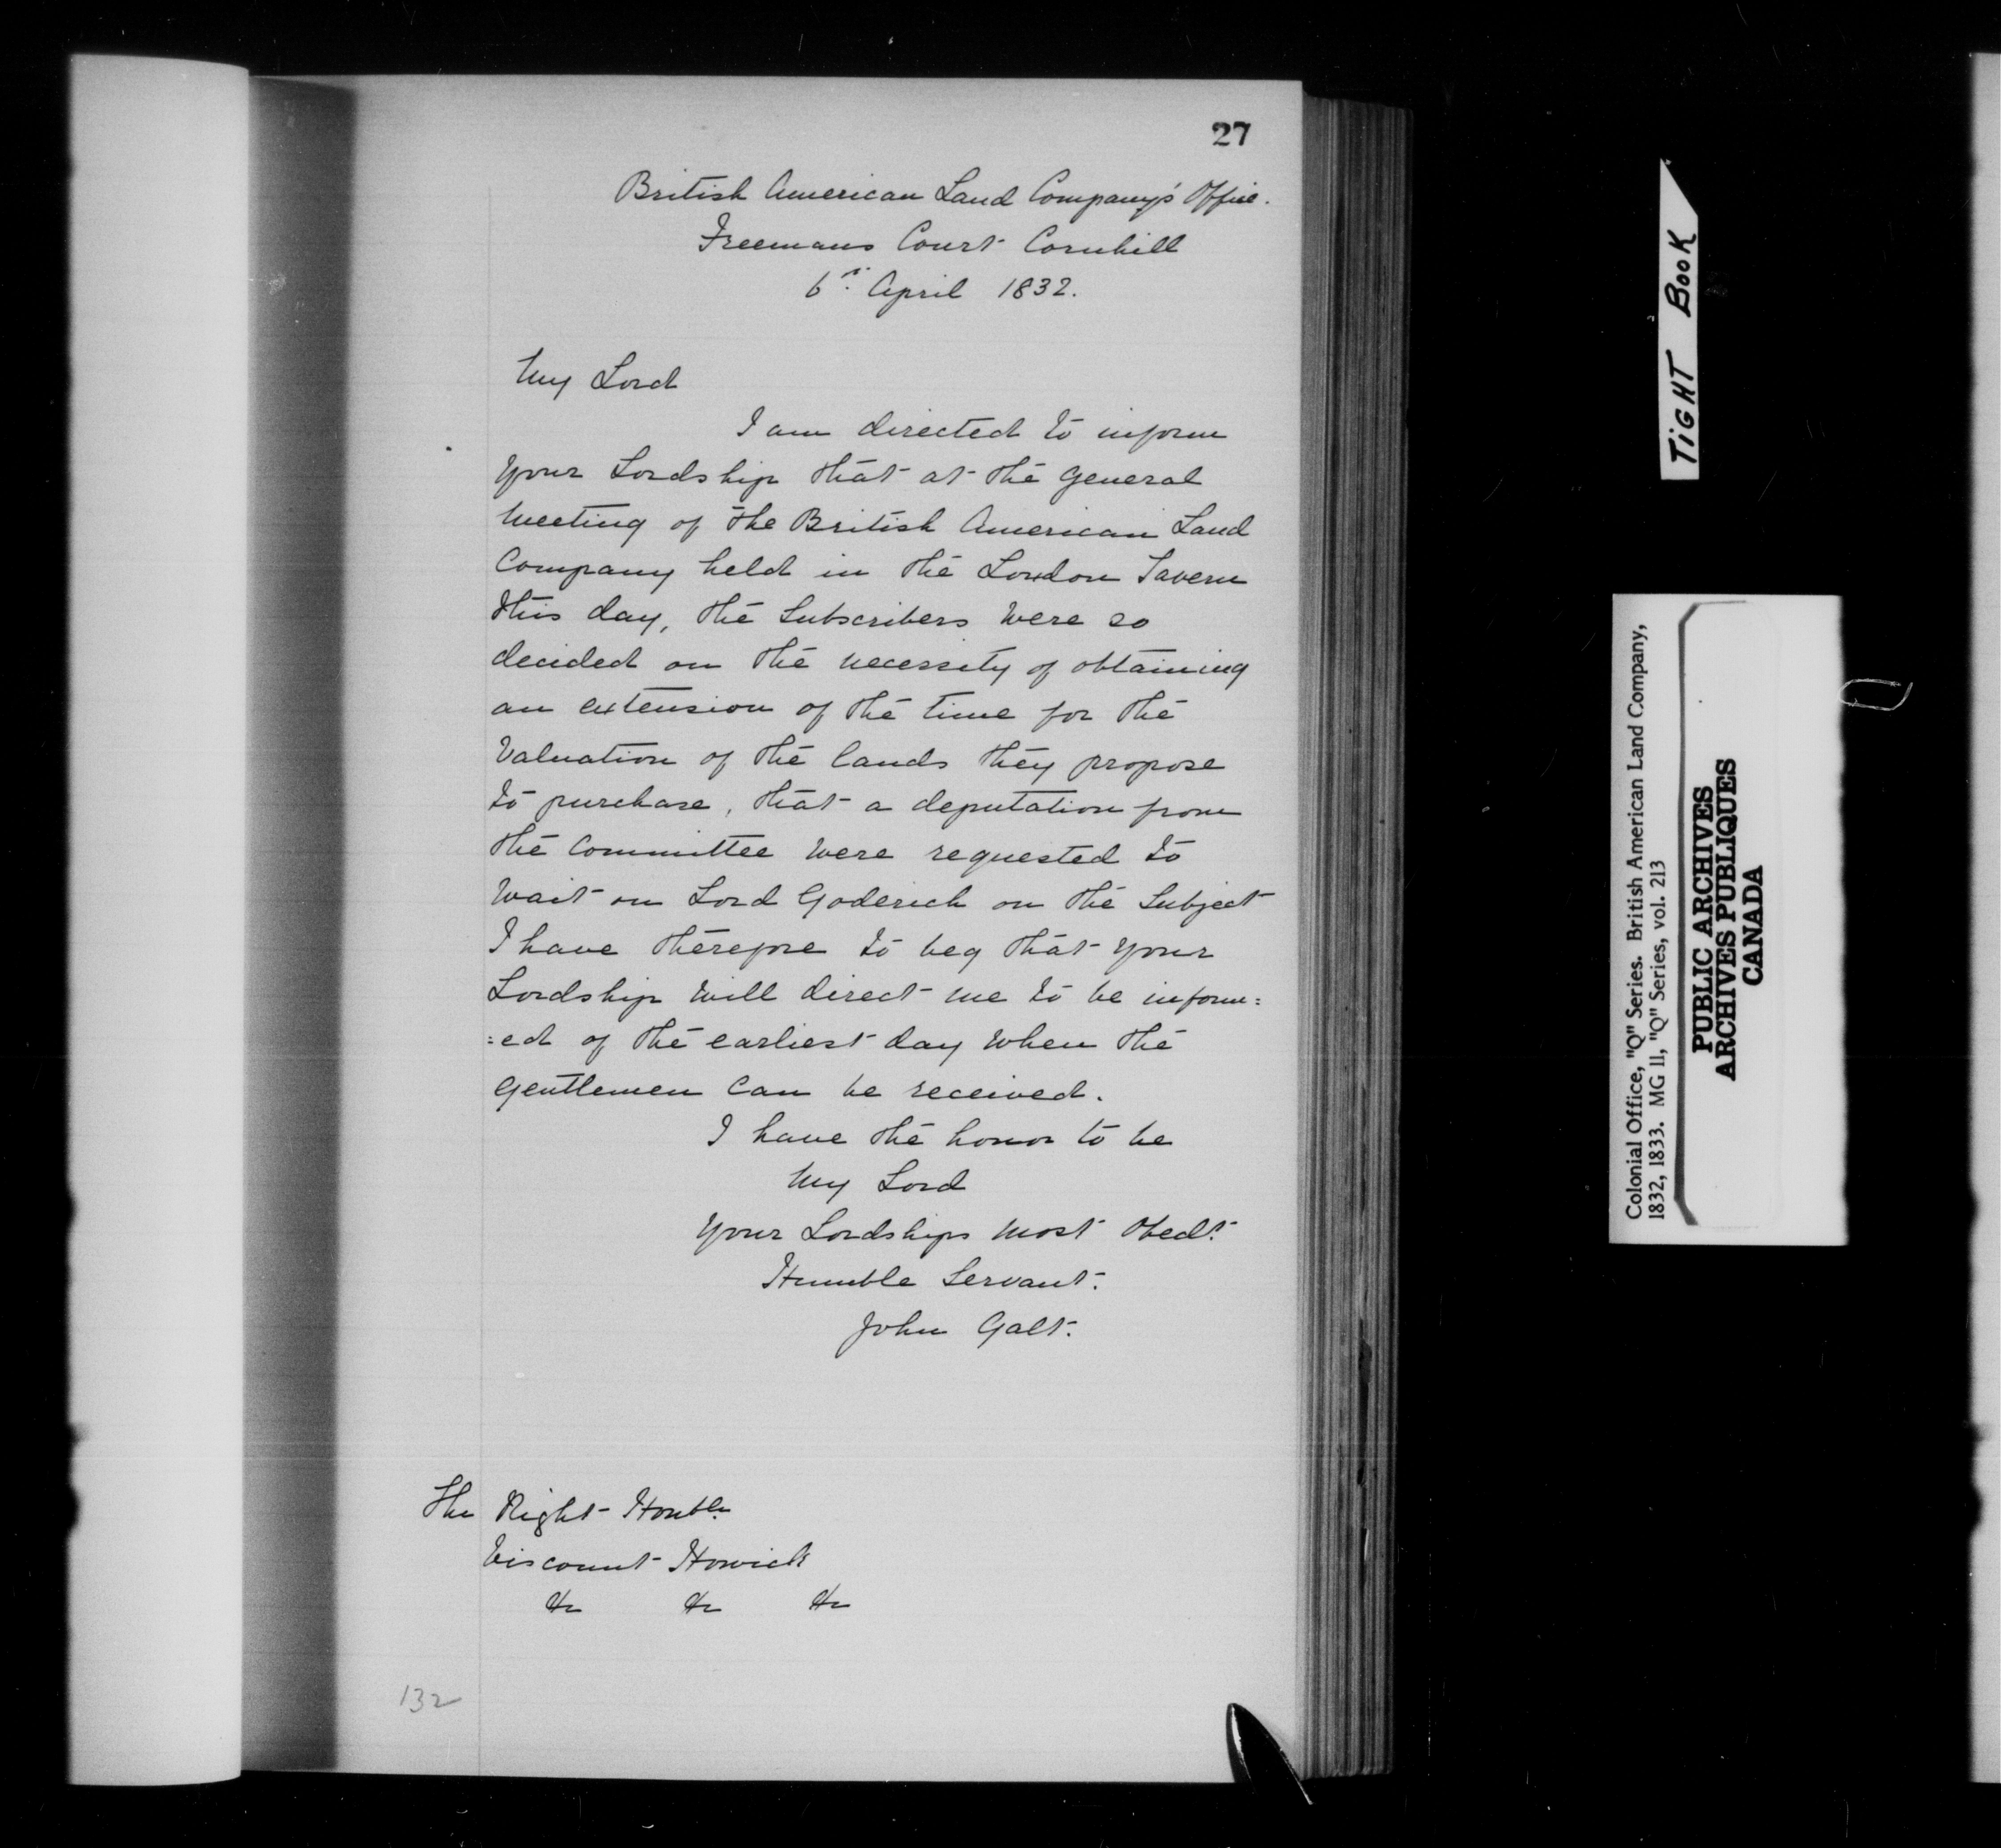 27
British American Land Company's Office.
Freemans Court Cornhill
6th April 1832.
My Lord
I am directed to inform
your Lordship that at the general
meeting of the British American Land
Company held in the London Tavern
this day, the Subscribers were so
decided on the necessity of obtaining
an extension of the time for the
Valuation of the lands they propose
to purchase, that a deputation from
the Committee were requested to
wait on Lord Goderich on the Subject
I have therefore to beg that your
Lordship will direct me to be inform=
=ed of the earliest day when the
gentlemen can be received.
I have the honor to be
My Lord
Your Lordships most Obedt.
Humble Servant.
John Galt.
The Right Honble.
Viscount Howick
&c &c &c
132
TIGHT BOOK
Colonial Office, "Q" Series. British American Land Company,
1832, 1833. MG 11, "Q" Series, vol. 213
PUBLIC ARCHIVES
ARCHIVES PUBLIQUES
CANADA